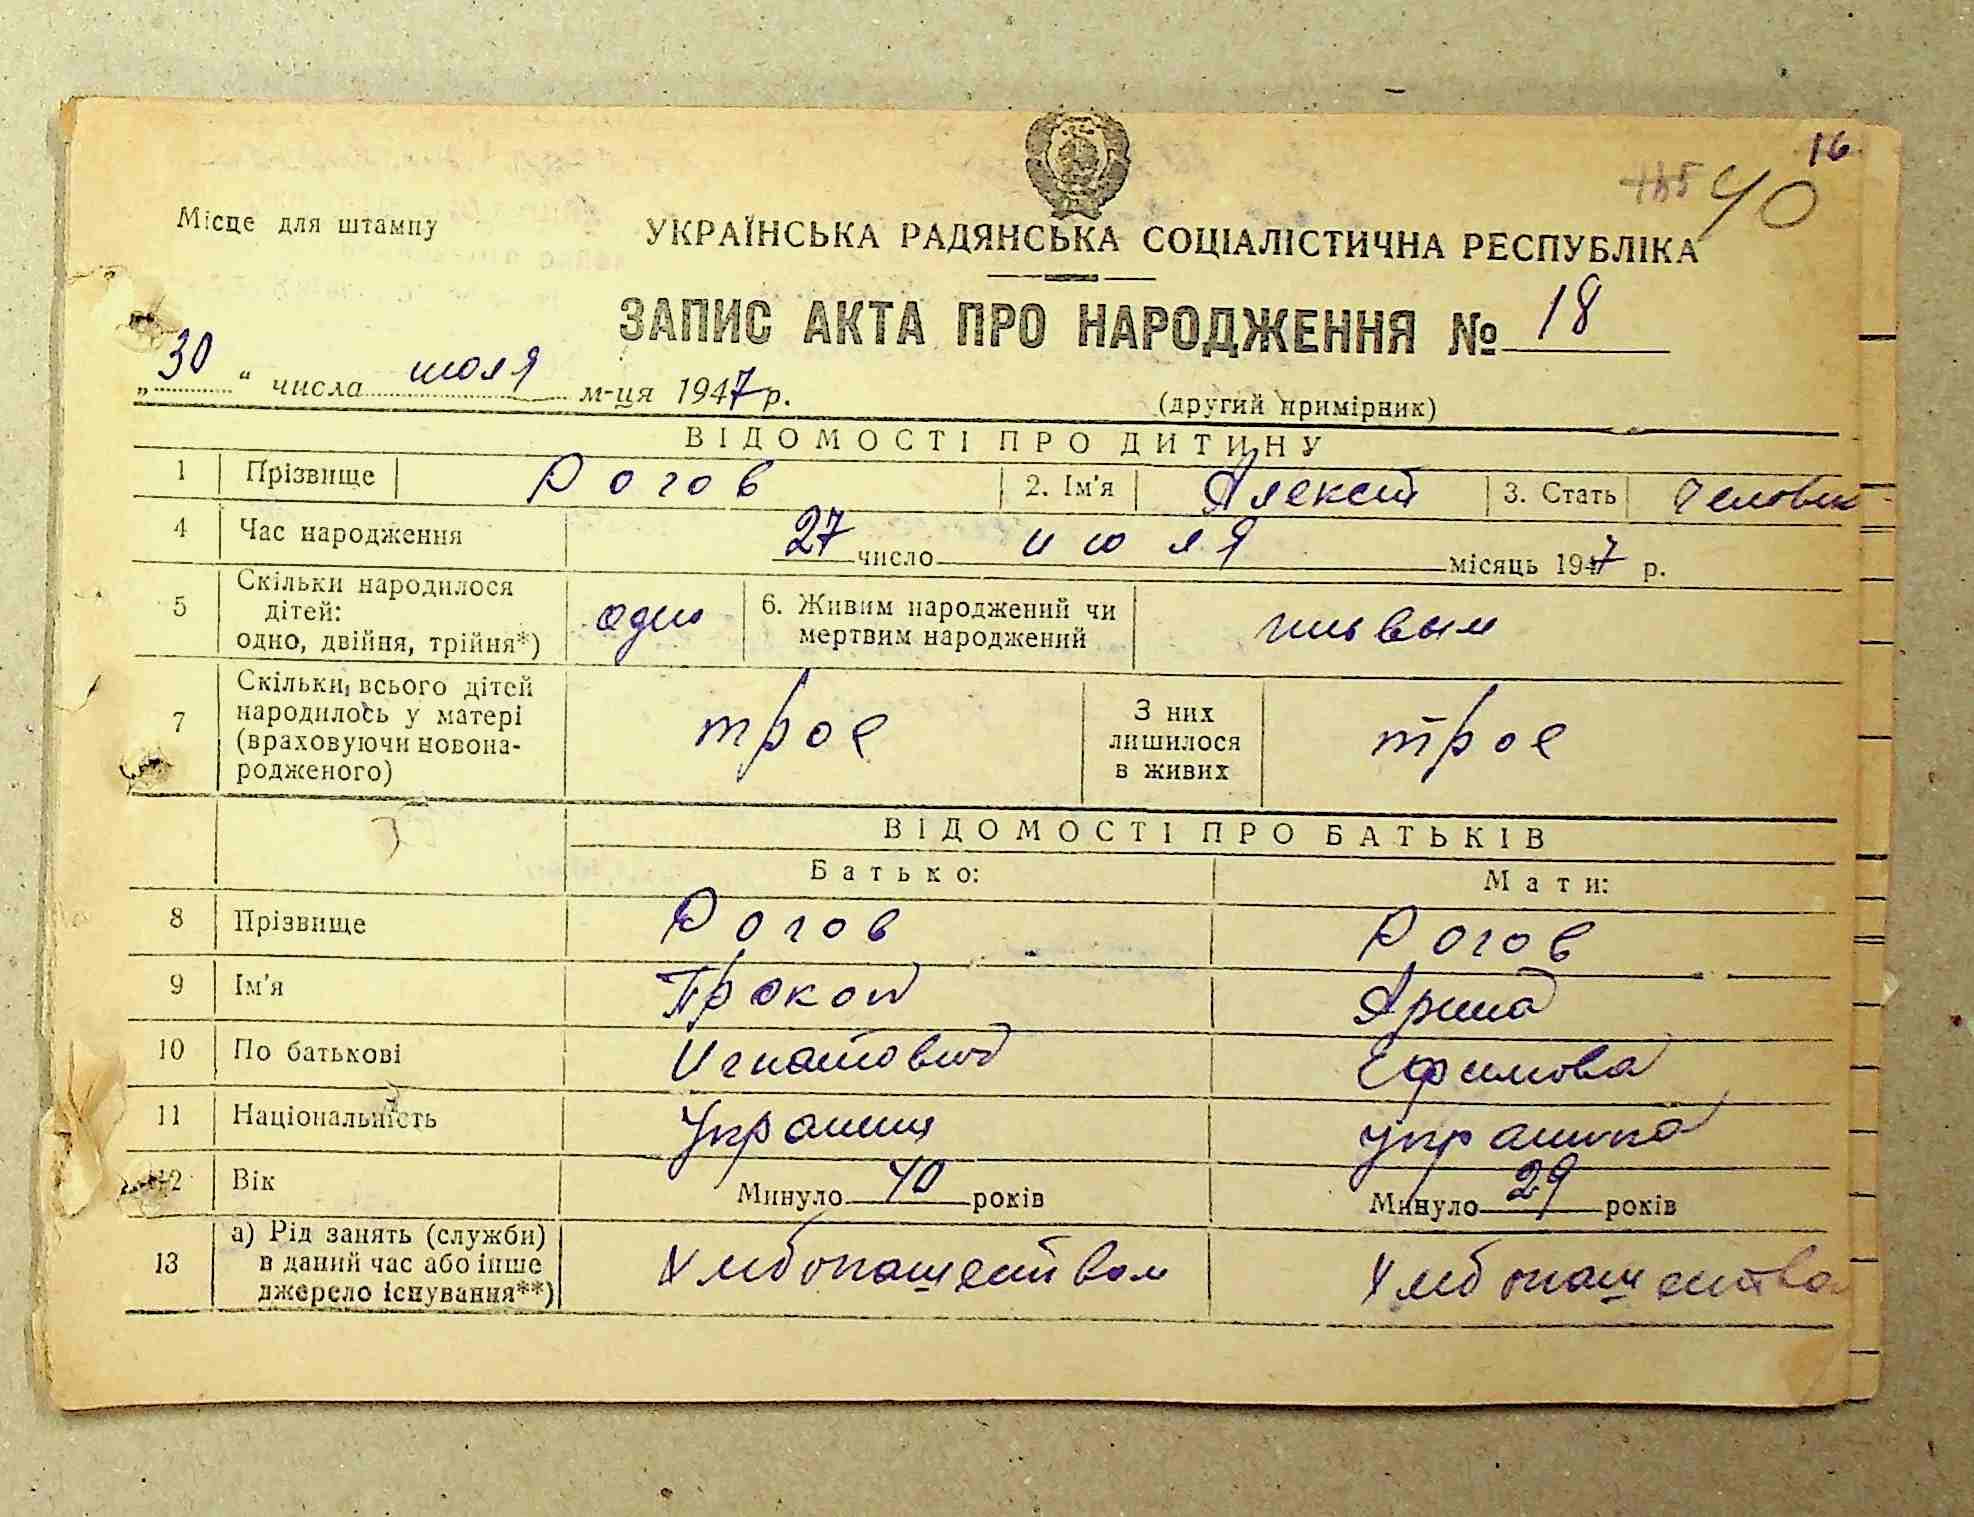 16
40
Місце для штампу
УКРАЇНСЬКА РАДЯНСЬКА СОЦІАЛІСТИЧНА РЕСПУБЛІКА
ЗАПИС АКТА ПРО НАРОДЖЕННЯ № 18
„30“ числа июля м-ця 1947 р.
(другий примірник)
ВІДОМОСТІ ПРО ДИТИНУ
1 Прізвище Рогов 2. Ім'я Алексей 3. Стать Человек
4 Час народження 27 число июля місяць 1947 р.
5 Скільки народилося дітей: одно, двійня, трійня*) один 6. Живим народжений чи мертвим народжений живым
7 Скільки всього дітей народилось у матері (враховуючи новонародженого) трое З них лишилося в живих трое
ВІДОМОСТІ ПРО БАТЬКІВ
Батько: Мати:
8 Прізвище Рогов Рогов
9 Ім'я Прокоп Арина
10 По батькові Игнатович Ефимова
11 Національність Украинец украинка
12 Вік Минуло 40 років Минуло 29 років
13 а) Рід занять (служби) в даний час або інше джерело існування**) Хлебопашеством Хлебопашеством